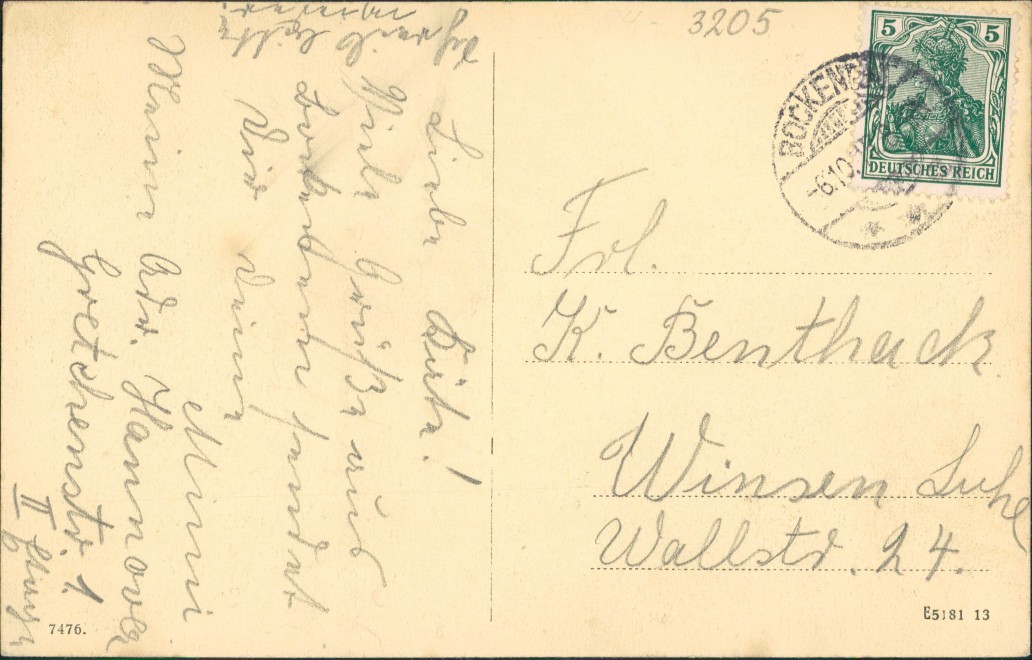 3205
5 5
DEUTSCHES REICH
BOCKENEM
-6.10.
Liebe Käte!
Viele Grüße aus
Bockenem sendet
Dir deine
Mimi
Meine Adr. Hannover
Gretchenstr. 1.
II Etage
Frl.
K. Benthack
Winsen Luhe
Wallstr. 24.
7476.
E5181 13